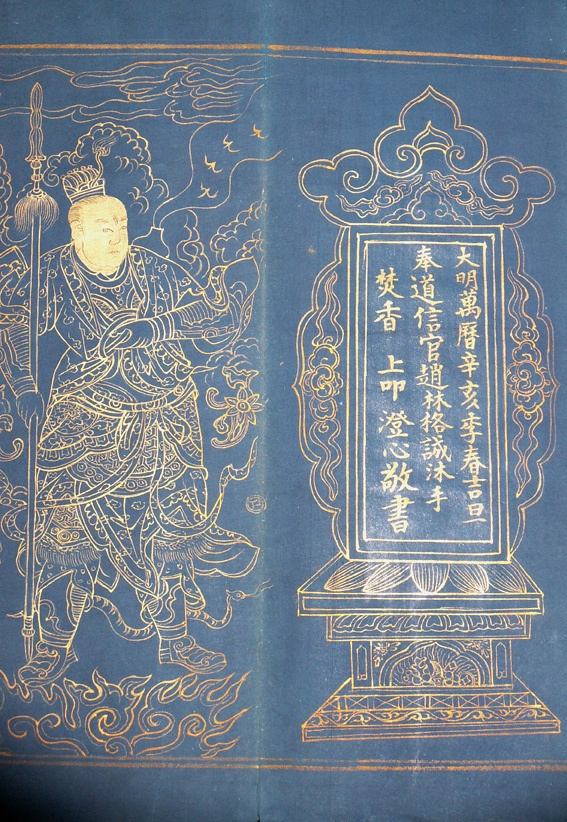 大明萬曆辛亥季春吉旦
奉道信官趙林格誠沐手
焚香上叩澄心敬書